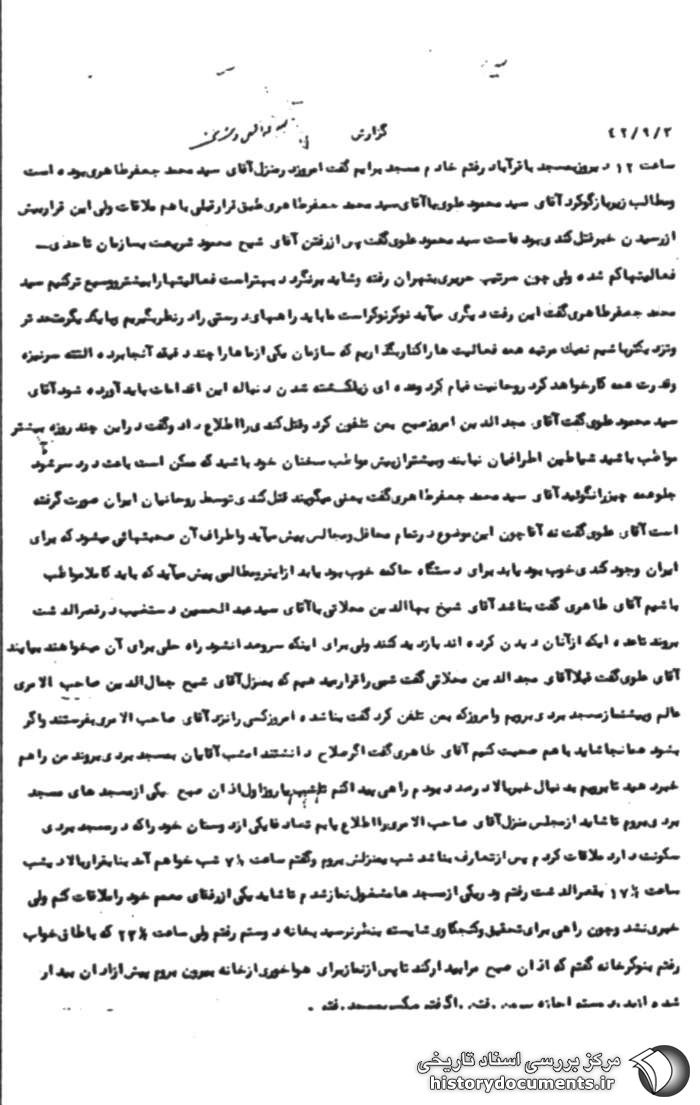 ۴۲/۹/۲ گزارش
ساعت ۱۲ دیروز بمسجد باقرآباد رفتم خادم مسجد برایم گفت امروز در منزل آقای سید محمد جعفر طاهری بوده است
ومطالب زیر بازگو کرد آقای سید محمود علوی با آقای سید محمد جعفر طاهری طبق قرار قبلی با هم ملاقات ولی این قرار پیش
از رسیدن خبر قتل کندی بوده است سید محمود علوی گفت پس از رفتن آقای شیخ محمود شریعت بسازمان تا حدی
فعالیتها کم شده ولی چون سرتیپ حریری بتهران رفته وشاید برنگردد بهتر است فعالیتها را بیشتر ووسیع تر کنیم سید
محمد جعفر طاهری گفت این رفت دیگری میآید نوکر نوکر است ما باید راههای درستی را در نظر بگیریم وبا یکدیگر متحد تر
ونزدیکتر باشیم نه یک مرتبه همه فعالیت ها را کنار بگذاریم که سازمان یکی از ماها را چند دقیقه آنجا برده البته سرنیزه
وقدرت همه کار خواهد کرد روحانیت قیام کرد وعده ای زیاد کشته شدن دنباله این اقدامات باید آورده شود آقای
سید محمود علوی گفت آقای مجدالدین امروز صبح بمن تلفون کرد وقتل کندی را اطلاع داد وگفت در این چند روزه بیشتر
مواظب باشید شیاطین اطرافیان نیایند وبیشتر از پیش مواظب سخنان خود باشید که ممکن است باعث درد سر شود
جلو همه چیز را نگوئید آقای سید محمد جعفر طاهری گفت یعنی میگویند قتل کندی توسط روحانیان ایران صورت گرفته
است آقای علوی گفت نه آقا چون این موضوع در تمام محافل ومجالس پیش میآید واطراف آن صحبتهائی میشود که برای
ایران وجود کندی خوب بود یا بد برای دستگاه حاکمه خوب بود یا بد از اینرو مطالبی پیش میآید که باید کاملا مواظب
باشیم آقای طاهری گفت بناشد آقای شیخ بهاالدین محلاتی با آقای سید عبدالحسین دستغیب در قصرالدشت
بروند تا عده ایکه از آنان دیدن کرده اند بازدید کنند ولی برای اینکه سروصدا نشود راه حلی برای آن میخواهند بیابند
آقای علوی گفت قبلا آقای مجدالدین محلاتی گفت شبی را قرار میدهیم که بمنزل آقای شیخ جمال الدین صاحب الامری
عالم وپیشنماز مسجد بردی برویم وامروز که بمن تلفن کرد گفت بناشده امروز کسی را نزد آقای صاحب الامری بفرستند واگر
بشود همانجا شاید با هم صحبت کنیم آقای طاهری گفت اگر صلاح دانستند امشب آقایان بمسجد بردی بروند من را هم
خبر دهید تا برویم بدنبال خبر بالا در صدد بودم راهی پیدا کنم تا شب یا روز اول اذان صبح یکی از مسجد های مسجد
بردی بروم تا شاید از مجلس منزل آقای صاحب الامری را اطلاع یابم تصادفا یکی از دوستان خود را که در مسجد بردی
سکونت دارد ملاقات کردم پس از تعارف بناشد شب بمنزلش بروم وگفتم ساعت ۷½ شب خواهم آمد بنا بقرار بالا دیشب
ساعت ۱۷½ بقصرالدشت رفتم ودر یکی از مسجد ها مشغول نماز شدم تا شاید یکی از رفقای معمم خود را ملاقات کنم ولی
خبری نشد وچون راهی برای تحقیق وکنجکاوی شایسته بنظر نرسید بخانه دوستم رفتم ولی ساعت ۲۲½ که باطاق خواب
رفتم بنوکر خانه گفتم که اذان صبح مرا بیدار کند تا پس از نماز برای هواخوری از خانه بیرون بروم پیش از اذان بیدار
شده
مرکز بررسی اسناد تاریخی
historydocuments.ir